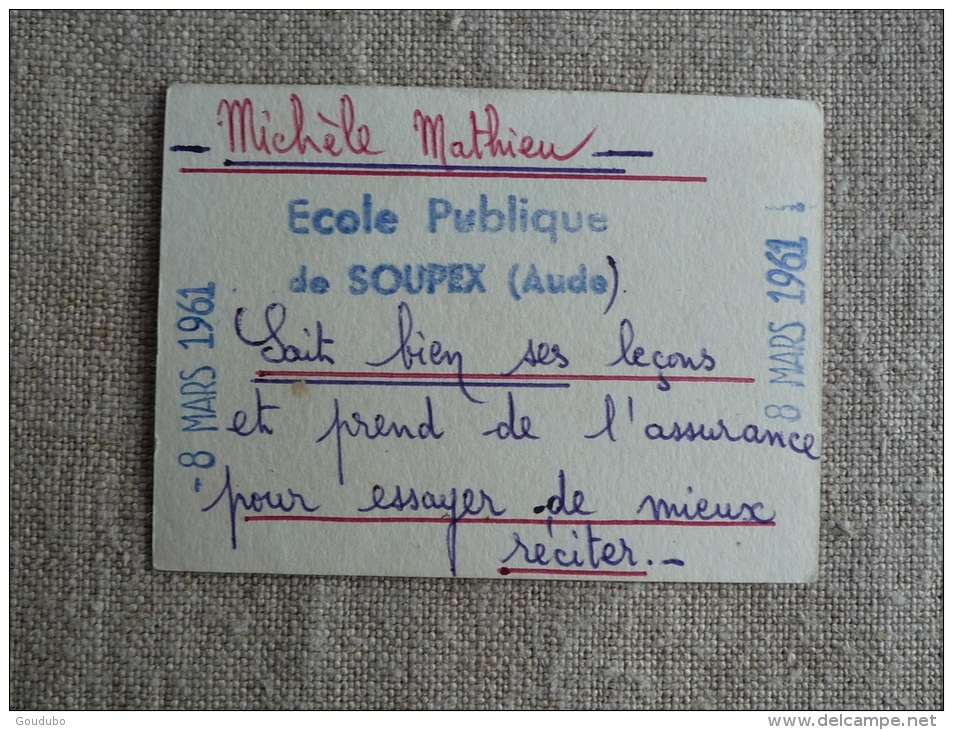 Michèle Mathieu
Ecole Publique
de SOUPEX (Aude).
- 8 MARS 1961
8 MARS 1961
Sait bien ses leçons
et prend de l'assurance
pour essayer de mieux
réciter.-
Goudubo
www.delcampe.net